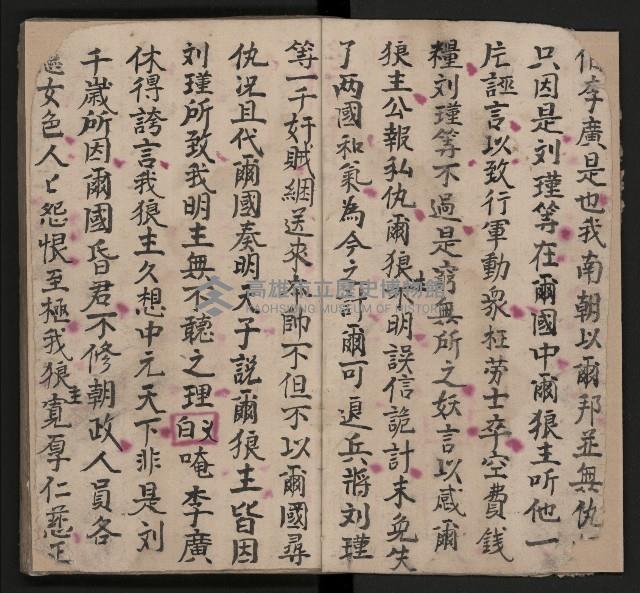 李廣是也我南朝以爾邦並無仇
只因是刘瑾等在爾國中爾狼主听他一
片誣言以致行軍動衆枉劳士卒空費銭
糧刘瑾等不過是窮無所之妖言以惑爾
狼主公報私仇爾狼主不明誤信詭計未免失
了两國和氣為今之計爾可退兵將刘瑾
等一千奸賊綑送來本帥不但不以爾國尋
仇況且代爾國奏明天子說爾狼主皆因
刘瑾所致我明主無不聽之理 又白 唵李廣
休得誇言我狼主久想中元天下非是刘
千歲所因爾國昏君不修朝政人員各
女色人匕怨恨至極我狼主寬厚仁慈正
高雄市立歷史博物館
KAOHSIUNG MUSEUM OF HISTORY